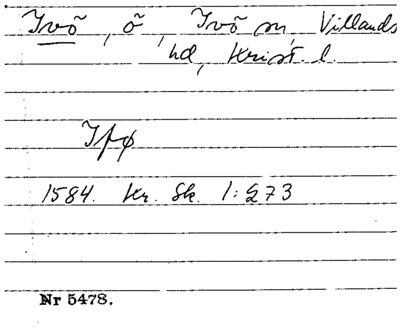 Ivö, ö, Ivö sn, Villands
hd, Krist. l.
Ifø
1584. Kr. Sk. 1:273
Nr 5478.